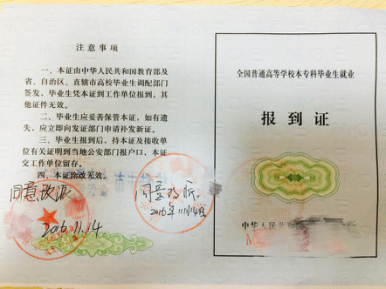 注意事项
一、本证由中华人民共和国教育部及
省、自治区、直辖市高校毕业生调配部门
签发,毕业生凭本证到工作单位报到,其
他证件无效。
二、毕业生应妥善保管本证,如有遗
失,应立即向发证部门申请补发新证。
三、毕业生报到后,持本证及接收单
位有关证明到当地公安部门报户口,本证
交工作单位留存。
四、本证涂改无效。
同意改派
2016.11.14
同意改派
2016年11月14日
全国普通高等学校本专科毕业生就业
报到证
中华人民共